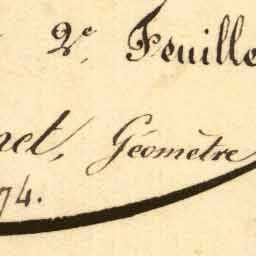 2e. Feuille
net, Géomètre
74.